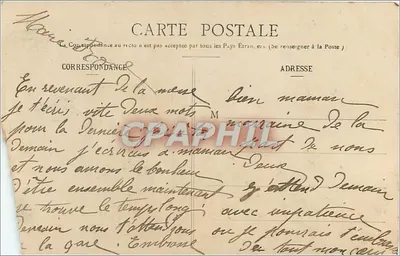 CARTE POSTALE
La Correspondance au verso n'est pas acceptée par tous les Pays Étrangers (Se renseigner à la Poste)
CORRESPONDANCE
ADRESSE
En revenant de la messe
je t'écris vite deux mots
pour la dernière
Demain j'écrirai à maman
et nous aurons le bonheur
d'être ensemble maintenant
je trouve le temps long
nous t'attendons
à la gare. Embrasse
M
bien maman
marraine de la
part de nous
deux
j'attend demain
avec impatience
où je pourrais t'embrasser
de tout mon cœur
CPARAMA